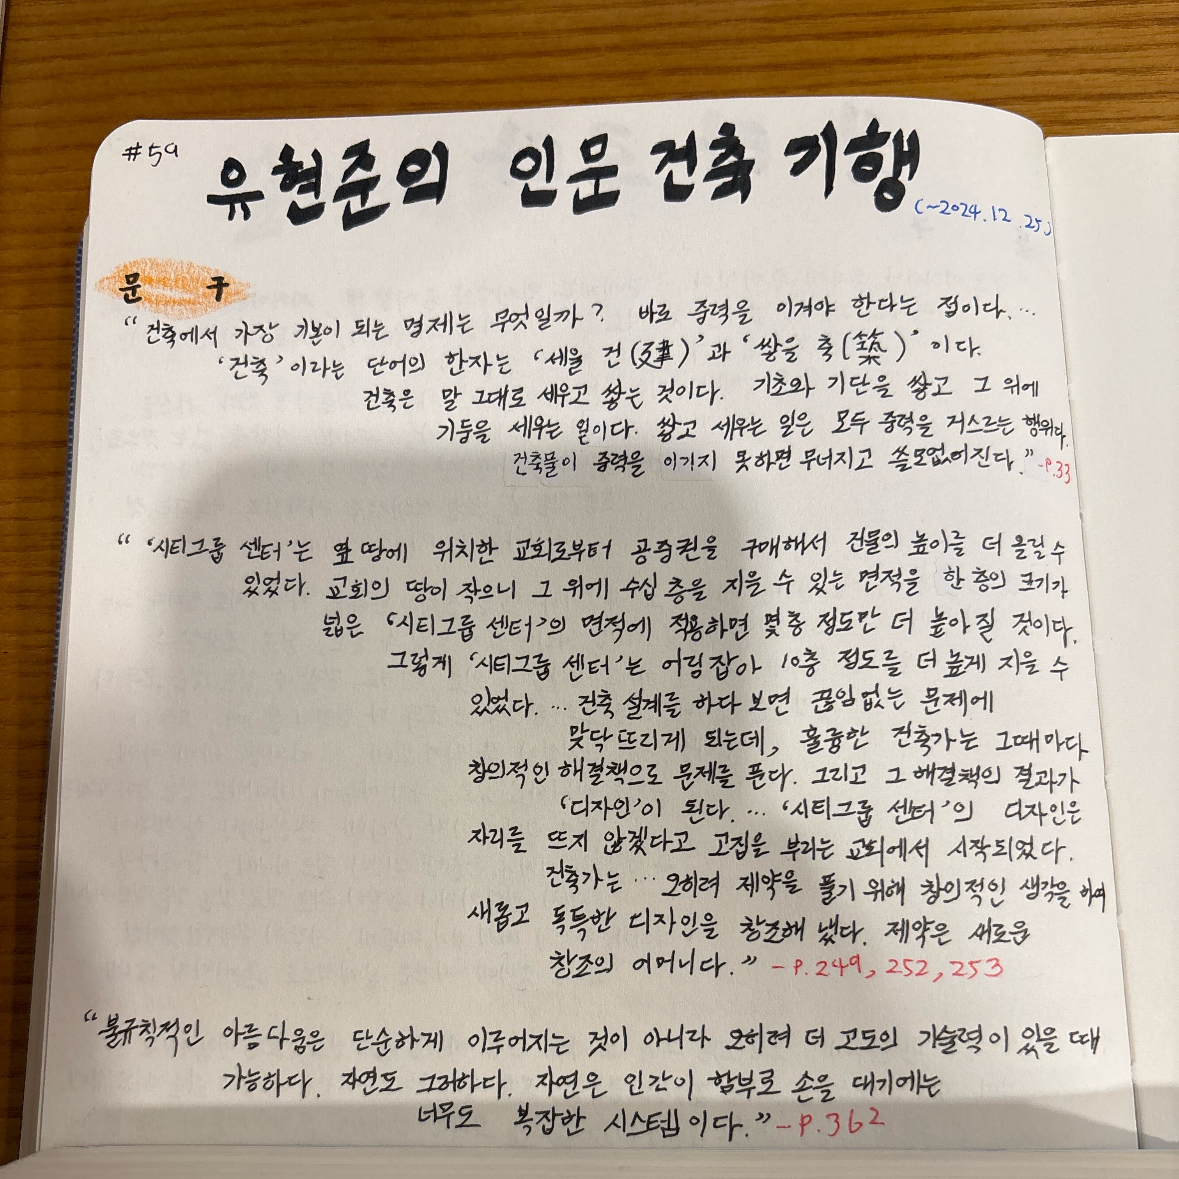 #59
유현준의 인문 건축 기행
(~2024.12.25)
문 구
“건축에서 가장 기본이 되는 명제는 무엇일까? 바로 중력을 이겨야 한다는 점이다.…
‘건축’이라는 단어의 한자는 ‘세울 건(建)’과 ‘쌓을 축(築)’이다.
건축은 말 그대로 세우고 쌓는 것이다. 기초와 기단을 쌓고 그 위에
기둥을 세우는 일이다. 쌓고 세우는 일은 모두 중력을 거스르는 행위다.
건축물이 중력을 이기지 못하면 무너지고 쓸모없어진다.” -p.33
“‘시티그룹 센터’는 옆 땅에 위치한 교회로부터 공중권을 구매해서 건물의 높이를 더 올릴 수
있었다. 교회의 땅이 작으니 그 위에 수십 층을 지을 수 있는 면적을 한 층의 크기가
넓은 ‘시티그룹 센터’의 면적에 적용하면 몇 층 정도만 더 높아질 것이다.
그렇게 ‘시티그룹 센터’는 어림잡아 10층 정도를 더 높게 지을 수
있었다. … 건축 설계를 하다 보면 끊임없는 문제에
맞닥뜨리게 되는데, 훌륭한 건축가는 그때마다
창의적인 해결책으로 문제를 푼다. 그리고 그 해결책의 결과가
‘디자인’이 된다. … ‘시티그룹 센터’의 디자인은
자리를 뜨지 않겠다고 고집을 부리는 교회에서 시작되었다.
건축가는 … 오히려 제약을 풀기 위해 창의적인 생각을 하여
새롭고 독특한 디자인을 창조해 냈다. 제약은 새로운
창조의 어머니다.” -p.249, 252, 253
“불규칙적인 아름다움은 단순하게 이루어지는 것이 아니라 오히려 더 고도의 기술력이 있을 때
가능하다. 자연도 그러하다. 자연은 인간이 함부로 손을 대기에는
너무도 복잡한 시스템이다.” -p.362